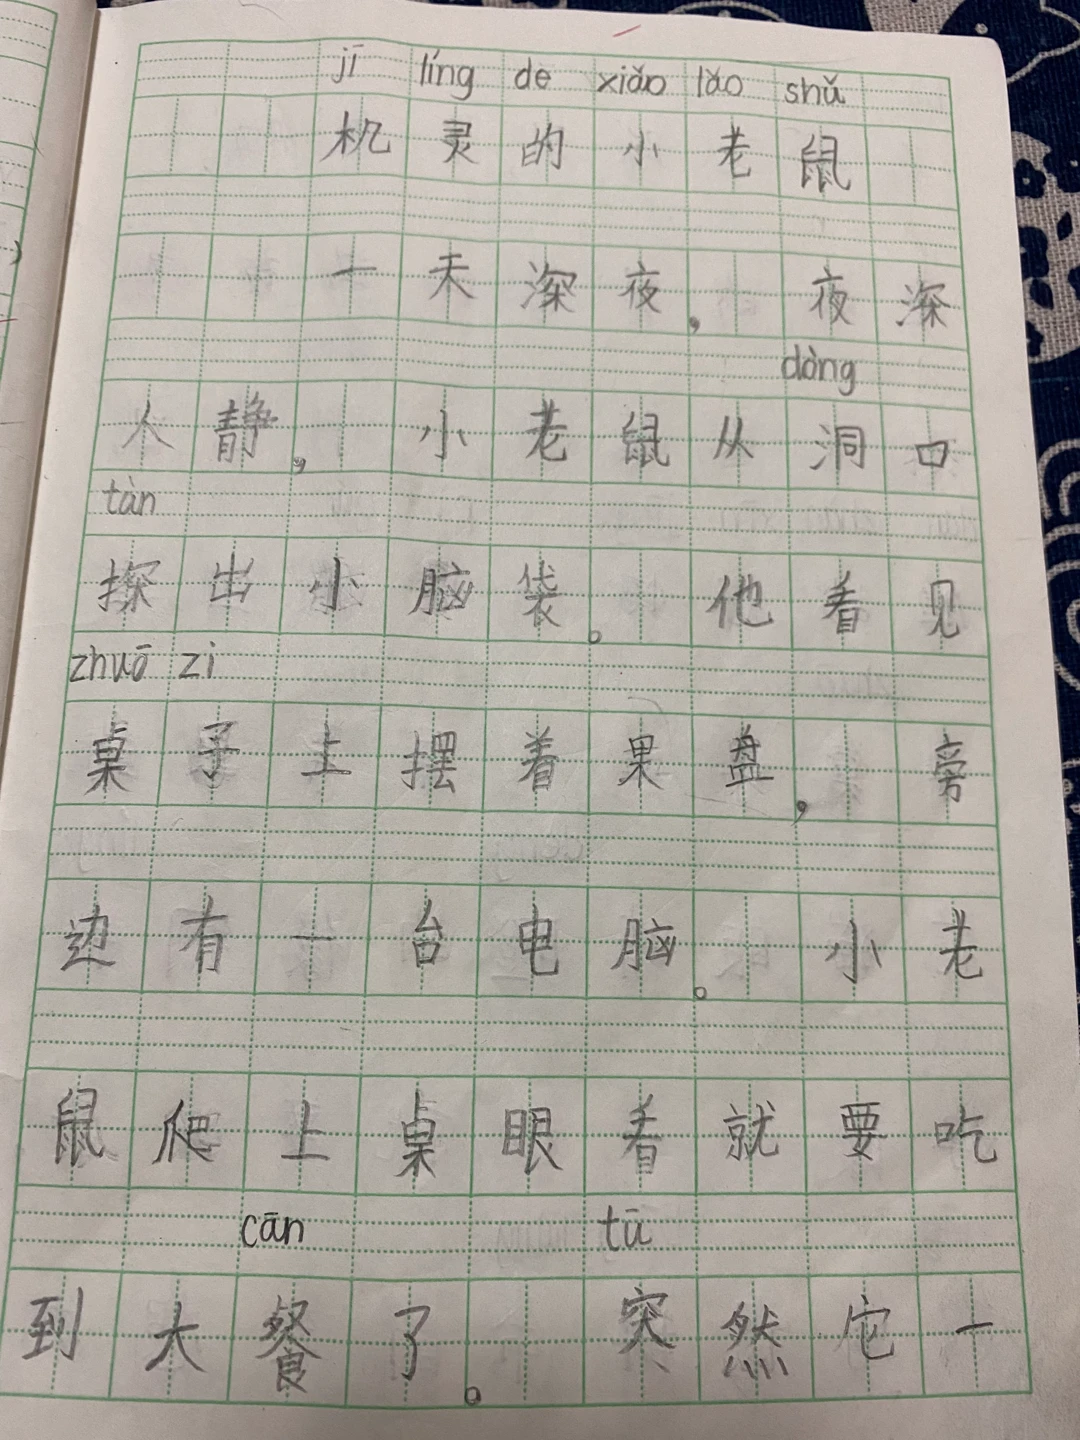 jī líng de xiǎo lǎo shǔ
机灵的小老鼠
一天深夜，夜深
dòng
人静，小老鼠从洞口
tàn
探出小脑袋。他看见
zhuō zi
桌子上摆着果盘，旁
边有一台电脑。小老
鼠爬上桌眼看就要吃
cān tū
到大餐了。突然它一